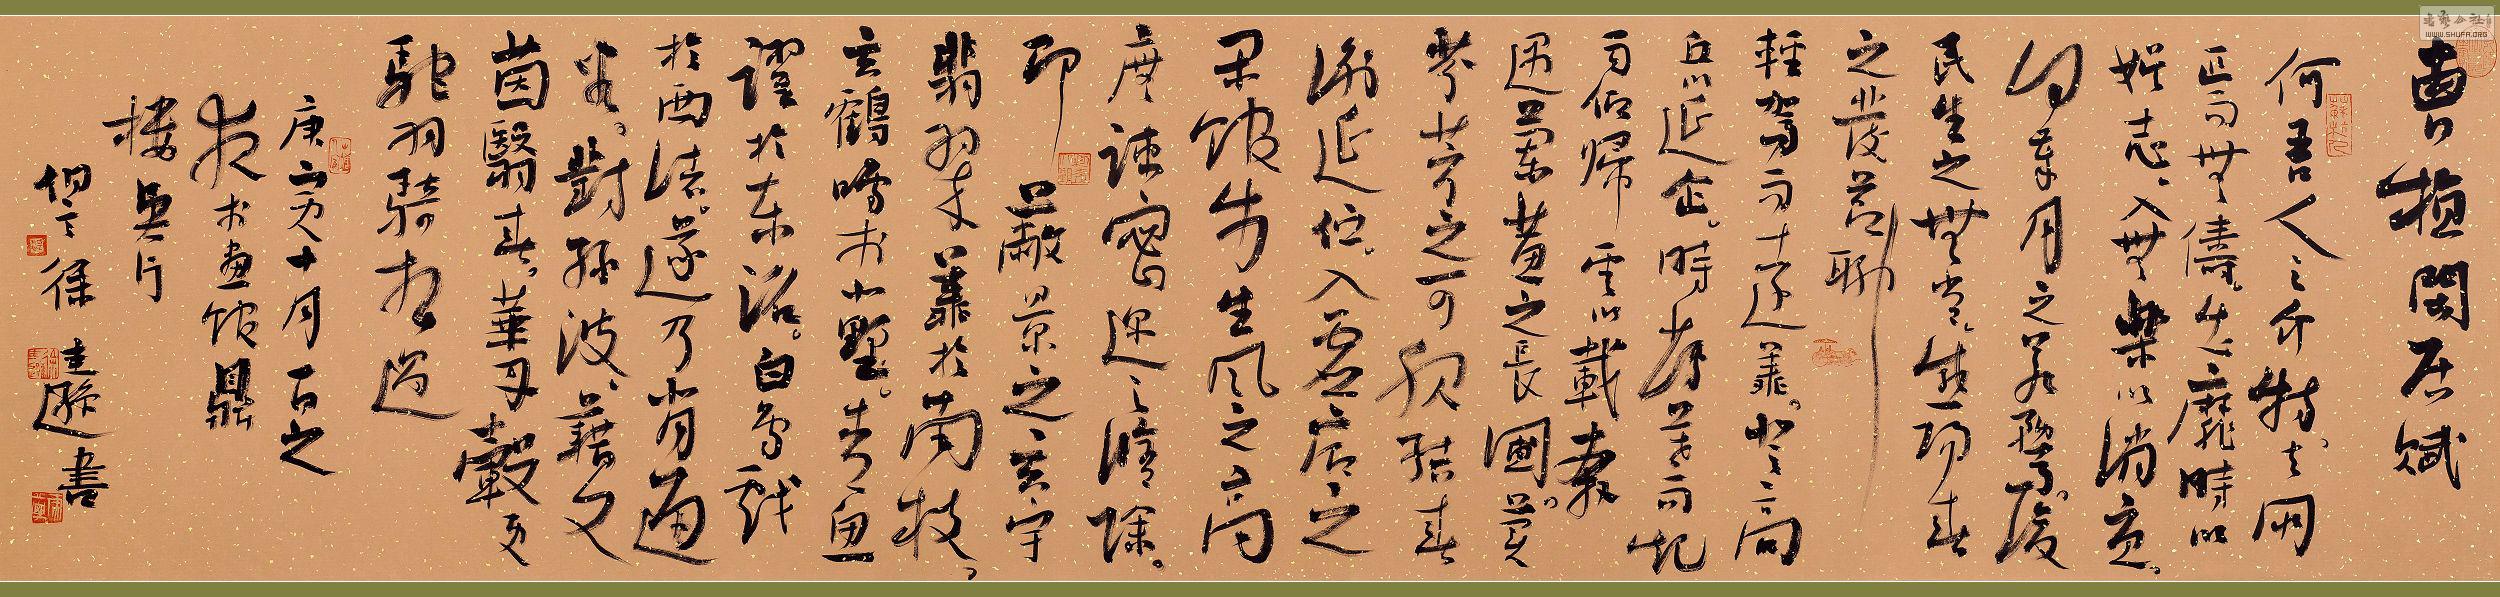 曹植閒居賦
何吾人之介特去朋
匹而無儔出靡時以
娛志入無樂以消憂
何歲月之若騖復
民生之無常感陽春
之發節聊
輕駕而遠翔登高
丘以延企時薄暮而起
雨仰歸雲以載奔
遇蘭蕙之長圃冀
芬芳之可服結春
衡以延佇入虛廓之
閑館步生風之高
廡踐密邇之修除
即蔽景之玄宇
翡翠翔於南枝
玄鶴鳴於北野青魚
躍於東沼白鳥戲
於西渚遂乃背通
谷對綠波藉文
茵翳春華丹轂更
馳羽騎相過
庚寅十月一日之
夜於畫館鼎
樓吳門
徐 書
WWW.SHUFA.ORG